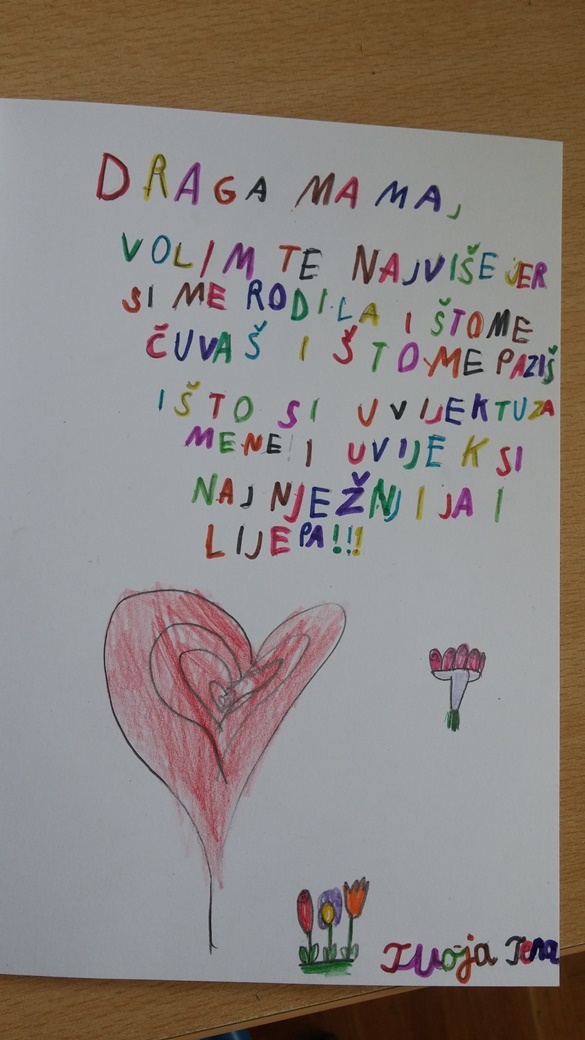 DRAGA MAMA,
VOLIM TE NAJVIŠE JER
SI ME RODILA I ŠTO ME
ČUVAŠ I ŠTO ME PAZIŠ
I ŠTO SI UVIJEK TU ZA
MENE I UVIJEK SI
NAJNJEŽNJIJA I
LIJEPA!!!
Tvoja Tena